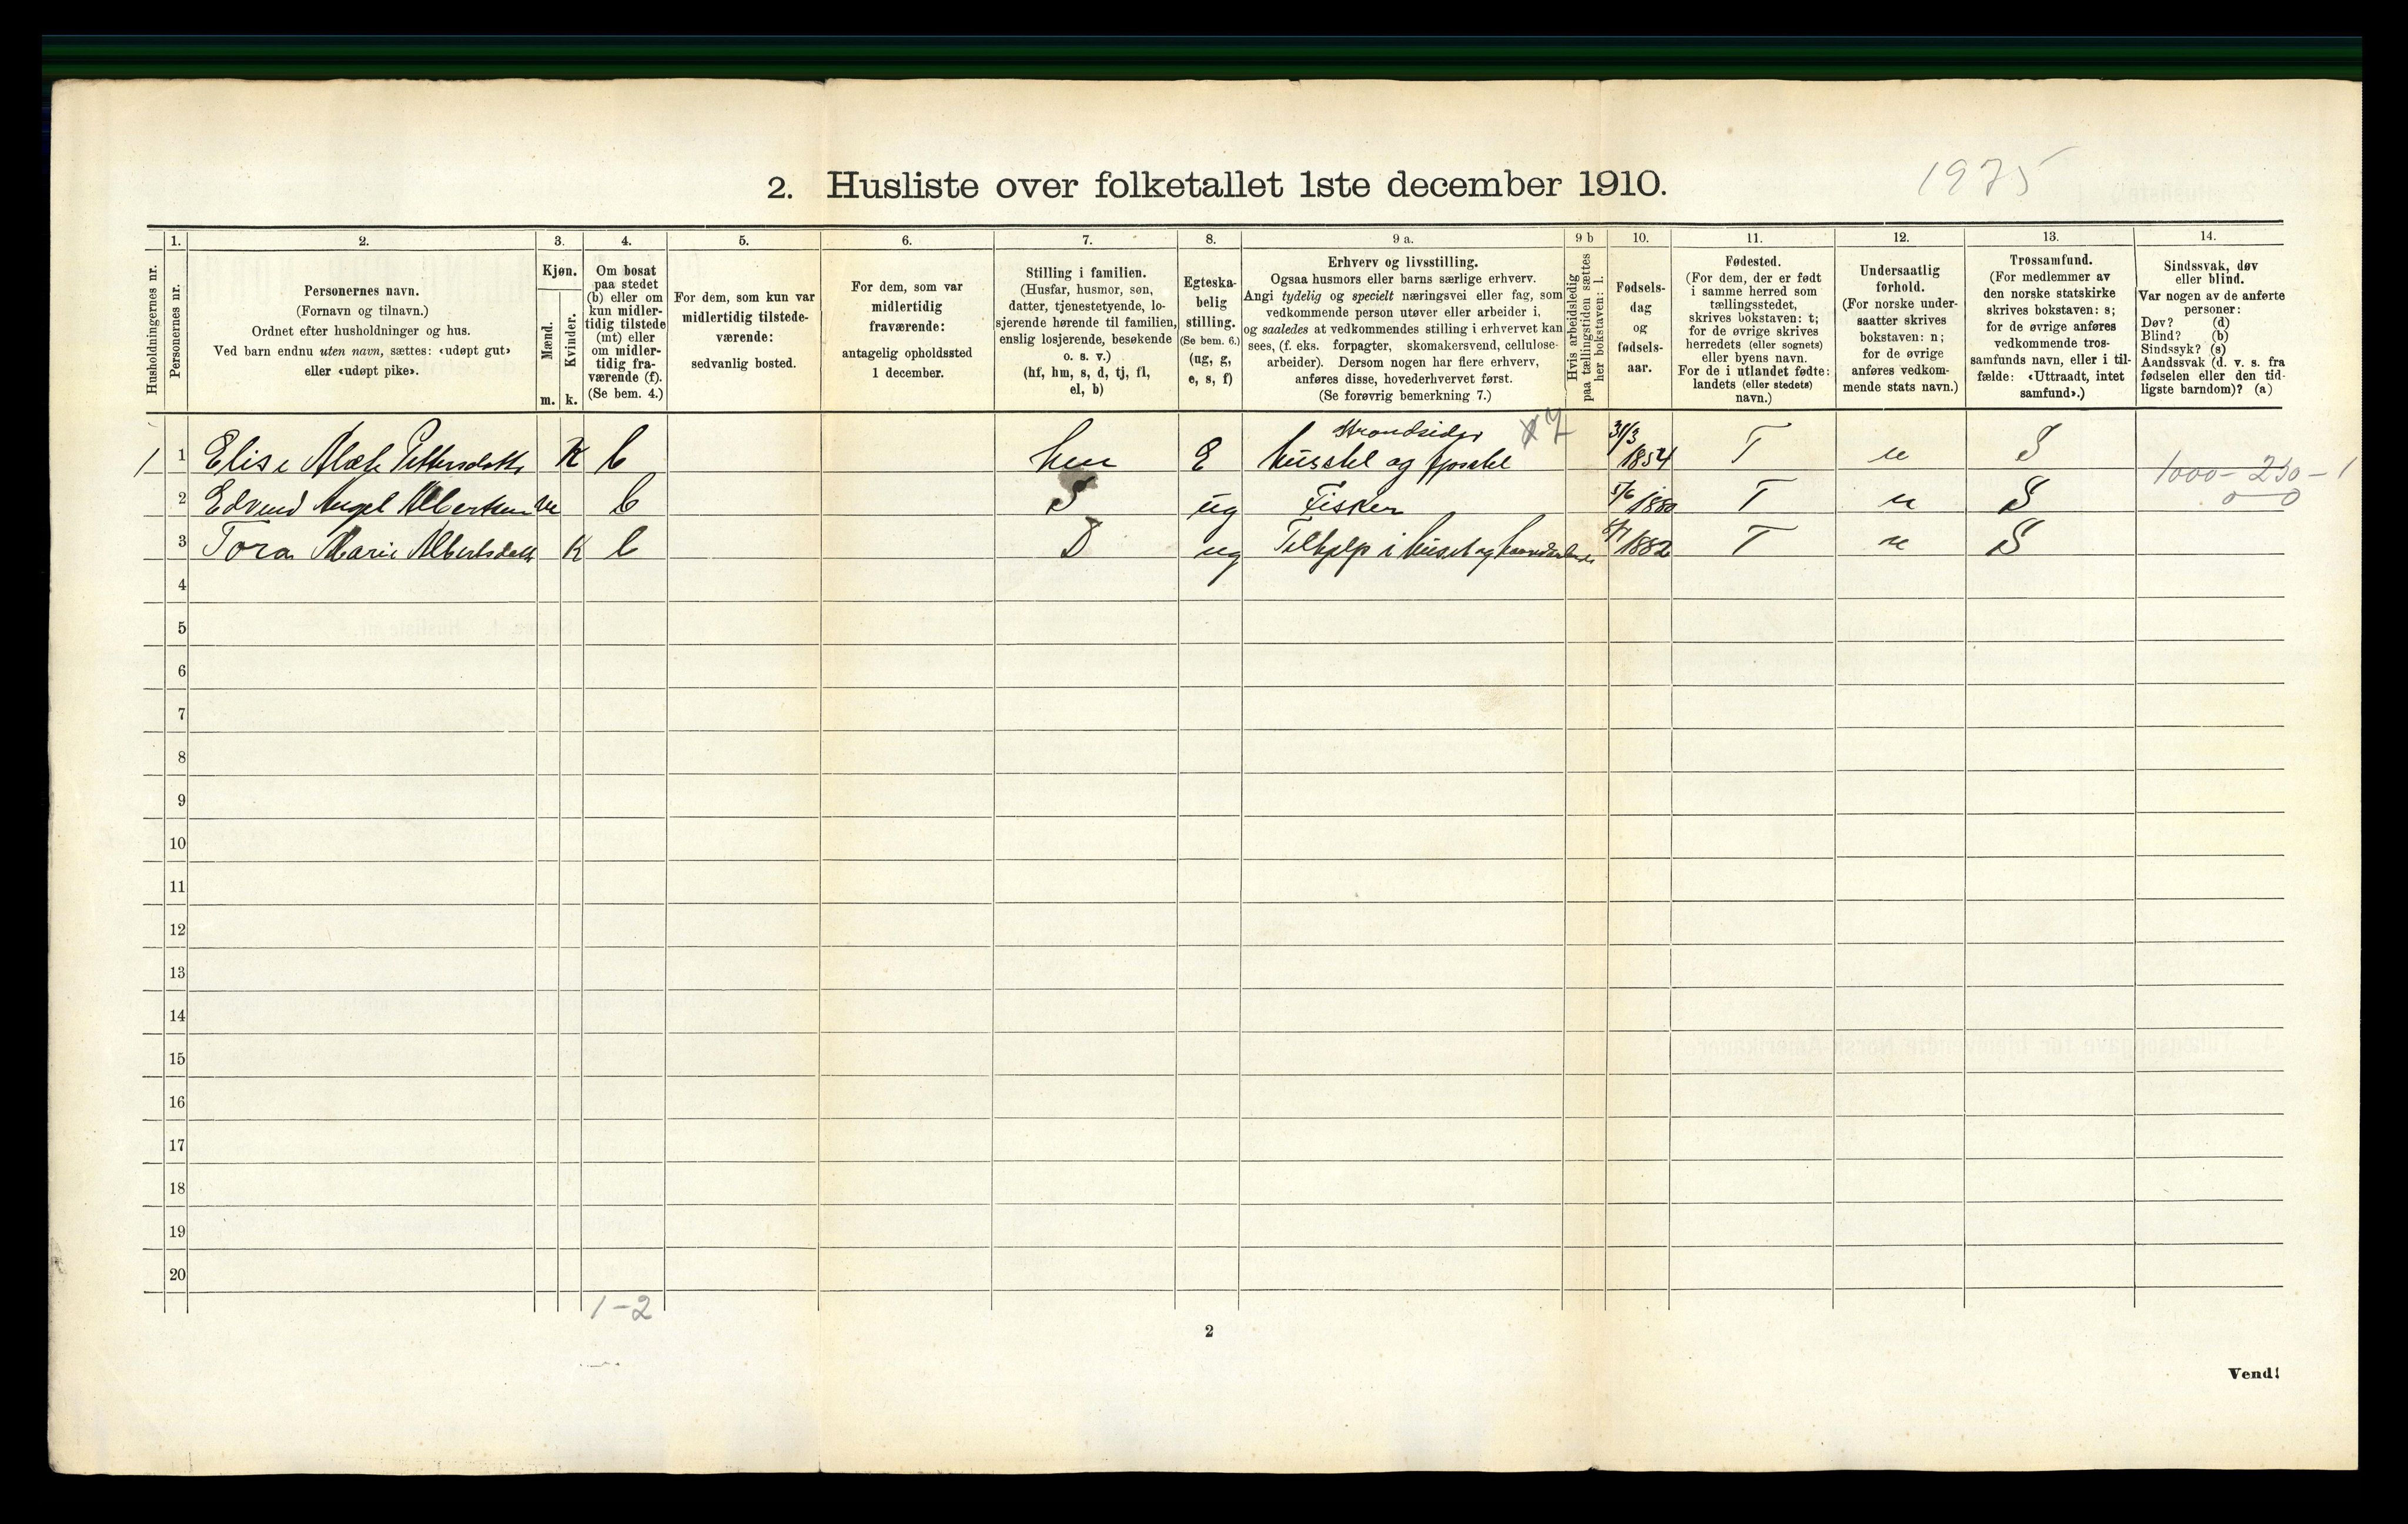 2. Husliste over folketallet 1ste december 1910.
1975
1. 2. 3. 4. 5. 6. 7. 8. 9 a. 9 b 10. 11. 12. 13. 14.
Husholdningernes nr.
Personernes nr.
Personernes navn.
(Fornavn og tilnavn.)
Ordnet efter husholdninger og hus.
Ved barn endnu uten navn, sættes: «udøpt gut»
eller «udøpt pike».
Kjøn.
Mænd.
Kvinder.
m. k.
Om bosat
paa stedet
(b) eller om
kun midler-
tidig tilstede
(mt) eller
om midler-
tidig fra-
værende (f).
(Se bem. 4.)
For dem, som kun var
midlertidig tilstede-
værende:
sedvanlig bosted.
For dem, som var
midlertidig
fraværende:
antagelig opholdssted
1 december.
Stilling i familien.
(Husfar, husmor, søn,
datter, tjenestetyende, lo-
sjerende hørende til familien,
enslig losjerende, besøkende
o. s. v.)
(hf, hm, s, d, tj, fl,
el, b)
Egteska-
belig
stilling.
(Se bem. 6.)
(ug, g,
e, s, f)
Erhverv og livsstilling.
Ogsaa husmors eller barns særlige erhverv.
Angi tydelig og specielt næringsvei eller fag, som
vedkommende person utøver eller arbeider i,
og saaledes at vedkommendes stilling i erhvervet kan
sees, (f. eks. forpagter, skomakersvend, cellulose-
arbeider). Dersom nogen har flere erhverv,
anføres disse, hovederhvervet først.
(Se forøvrig bemerkning 7.)
Hvis arbeidsledig
paa tællingstiden sættes
her bokstaven: l.
Fødsels-
dag
og
fødsels-
aar.
Fødested.
(For dem, der er født
i samme herred som
tællingsstedet,
skrives bokstaven: t;
for de øvrige skrives
herredets (eller sognets)
eller byens navn.
For de i utlandet fødte:
landets (eller stedets)
navn.)
Undersaatlig
forhold.
(For norske under-
saatter skrives
bokstaven: n;
for de øvrige
anføres vedkom-
mende stats navn.)
Trossamfund.
(For medlemmer av
den norske statskirke
skrives bokstaven: s;
for de øvrige anføres
vedkommende tros-
samfunds navn, eller i til-
fælde: «Uttraadt, intet
samfund».)
Sindssvak, døv
eller blind.
Var nogen av de anførte
personer:
Døv? (d)
Blind? (b)
Sindssyk? (s)
Aandssvak (d. v. s. fra
fødselen eller den tid-
ligste barndom)? (a)
Strandsider
1 1 Elise Pettersdatter K b hm E husstel og fjøsstel 31/3 1854 T n S
1000 - 250 - 1
2 Edvind Angel Albertsen m b S ug Fisker 5/6 1880 T n S
0 - 0
3 Tora Marie Albertsdatter K b D ug Tilhjelp i huset og 1882 T n S
4
5
6
7
8
9
10
11
12
13
14
15
16
17
18
19
20
1-2
2
Vend!